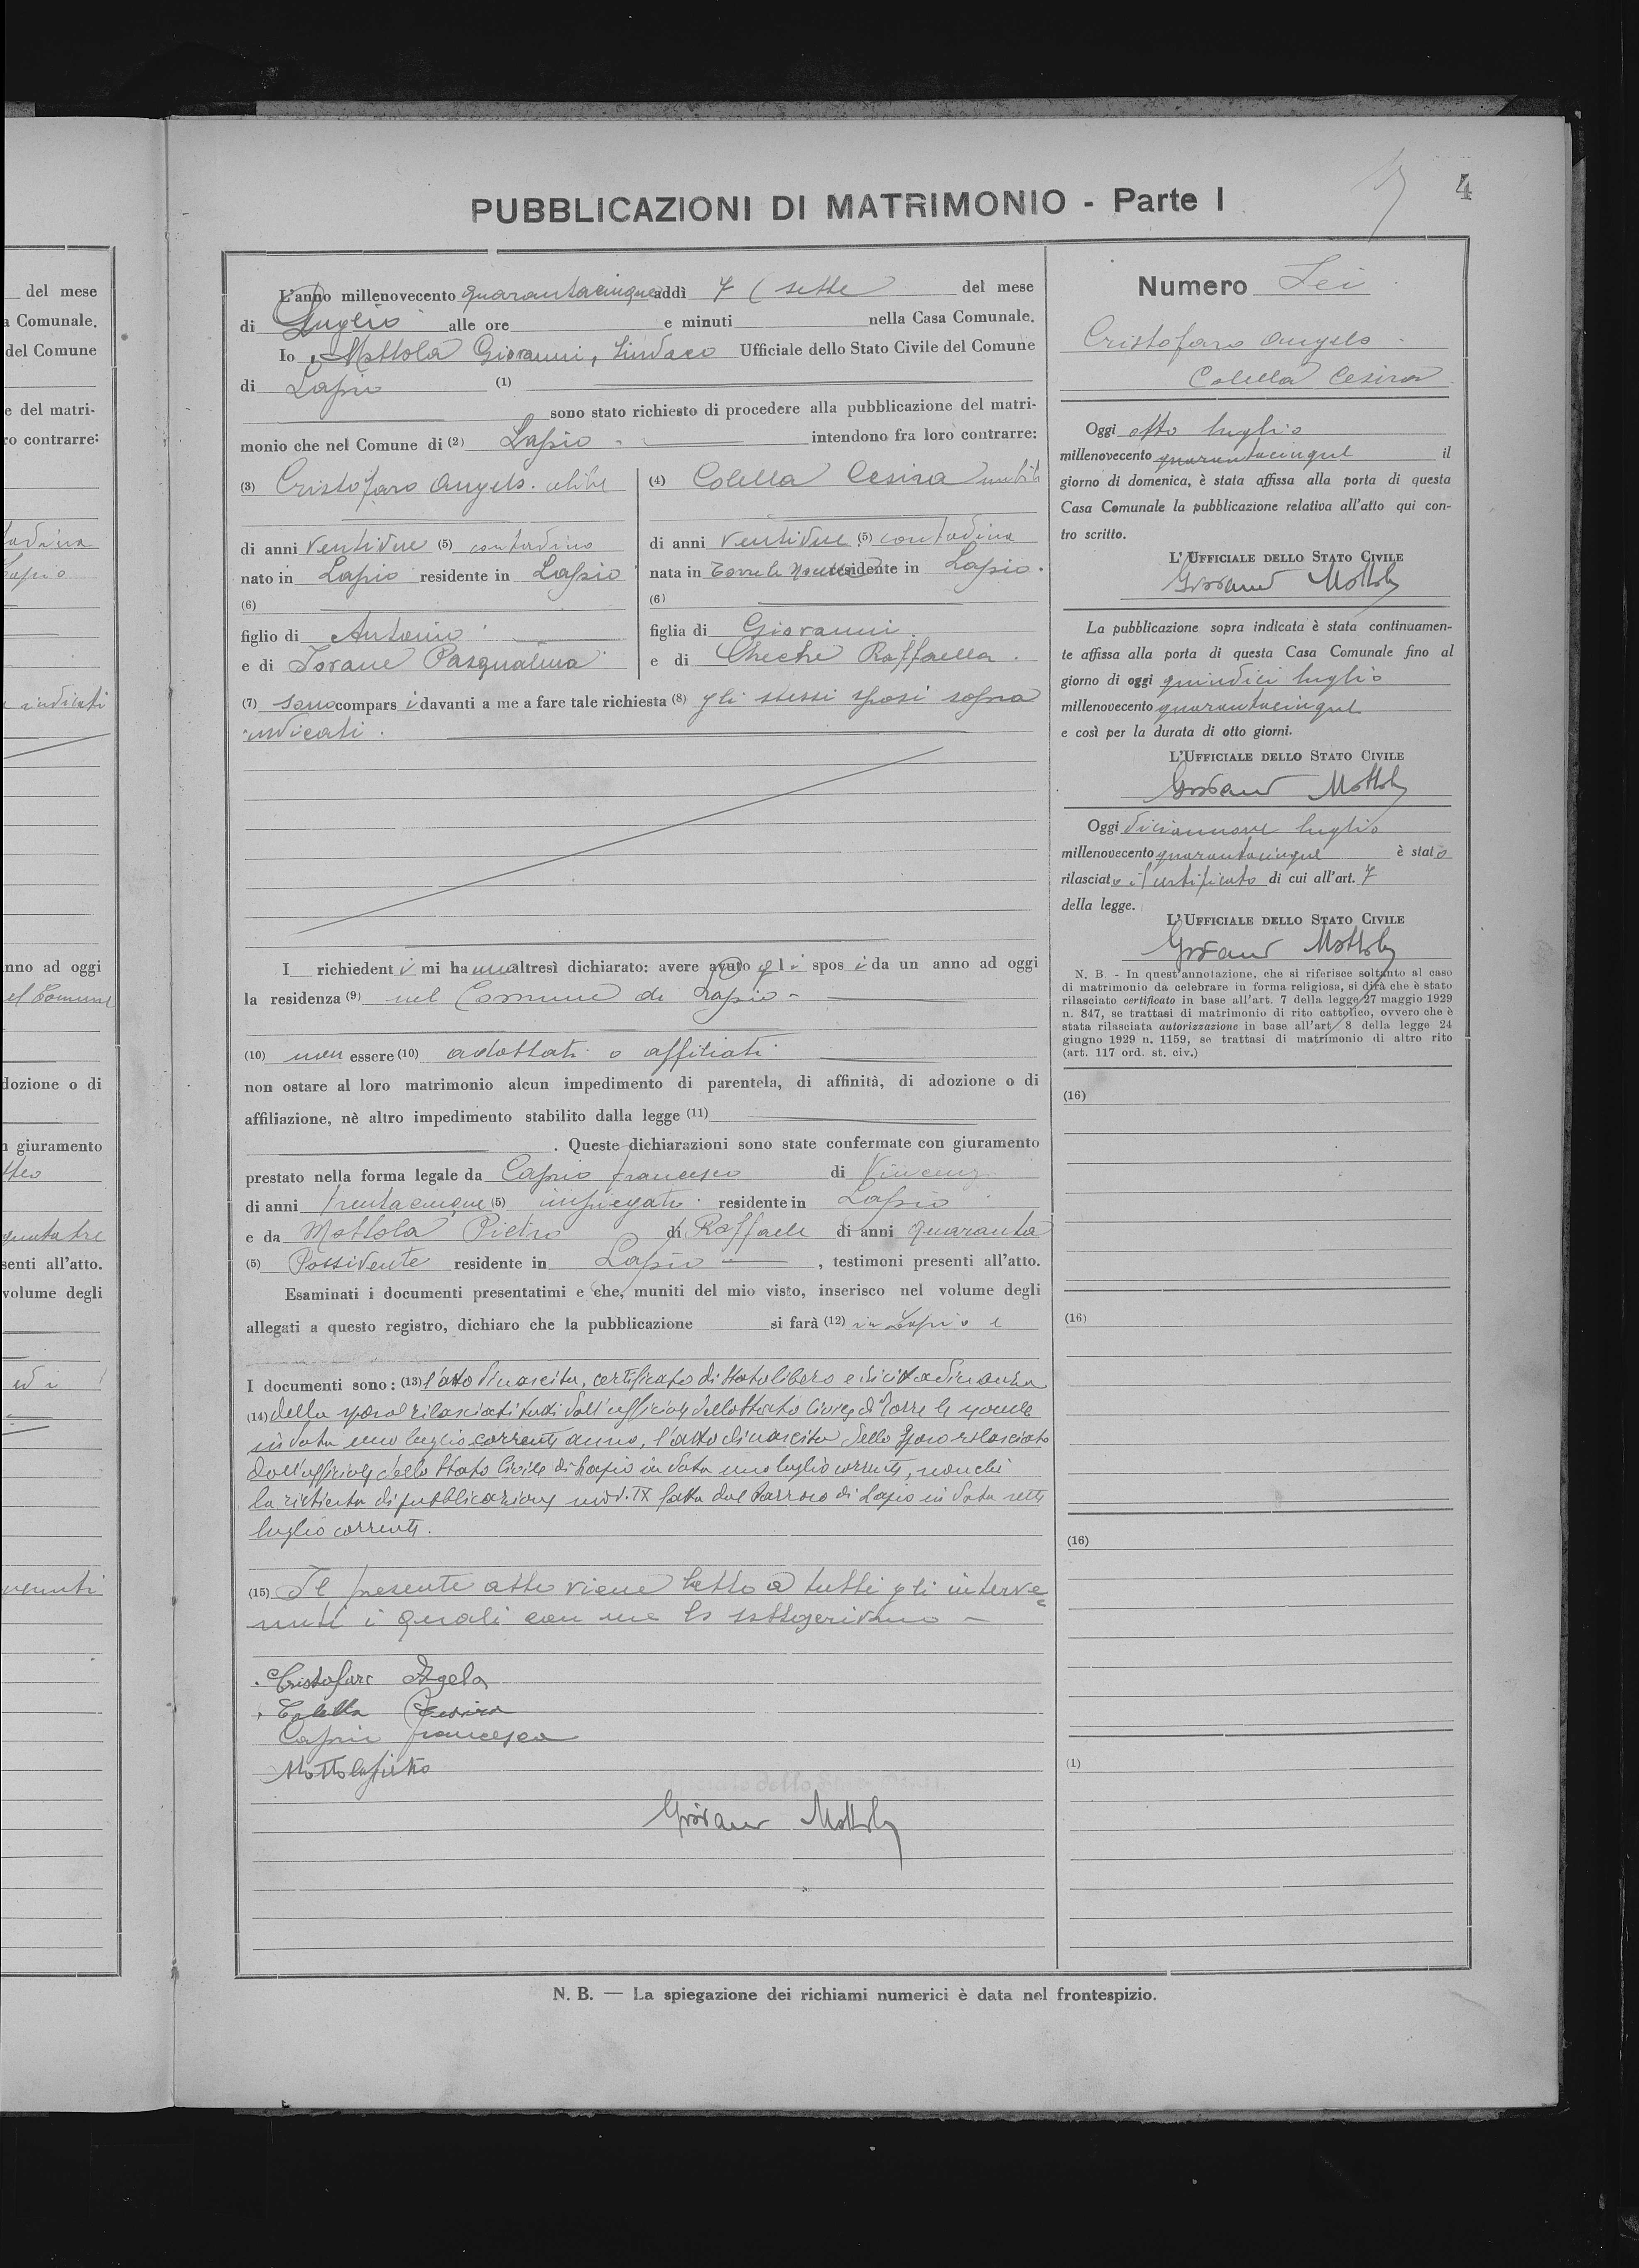 del mese
a Comunale.
del Comune
e del matri-
ro contrarre:
tadina
Lapio
indicati
nno ad oggi
el Comune
dozione o di
n giuramento
tteo
quantatre
senti all'atto.
volume degli
ed i
venuti
4
PUBBLICAZIONI DI MATRIMONIO - Parte I
L'anno millenovecento quarantacinque addì 7 (sette del mese
di Luglio alle ore e minuti nella Casa Comunale.
Io, Mottola Giovanni, Sindaco Ufficiale dello Stato Civile del Comune
di Lapio (1)
sono stato richiesto di procedere alla pubblicazione del matri-
monio che nel Comune di (2) Lapio. intendono fra loro contrarre:
(3) Cristofaro Angelo. celibe
di anni ventidue (5) contadino
nato in Lapio residente in Lapio
(6)
figlio di Antonio
e di Iovane Pasqualina
(4) Colella Cesira nubile
di anni ventidue (5) contadina
nata in Torre le Nocelle residente in Lapio.
(6)
figlia di Giovanni.
e di Checke Raffaella.
(7) sono compars i davanti a me a fare tale richiesta (8) gli stessi sposi sopra
indicati.
I richiedent i mi hanno altresì dichiarato: avere avuto gl i spos i da un anno ad oggi
la residenza (9) nel Comune di Lapio -
(10) non essere (10) adottati o affiliati
non ostare al loro matrimonio alcun impedimento di parentela, di affinità, di adozione o di
affiliazione, nè altro impedimento stabilito dalla legge (11)
. Queste dichiarazioni sono state confermate con giuramento
prestato nella forma legale da Caprio Francesco di Vincenzo
di anni trentacinque (5) impiegato. residente in Lapio
e da Mottola Pietro di Raffaele di anni quaranta
(5) Possidente residente in Lapio , testimoni presenti all'atto.
Esaminati i documenti presentatimi e che, muniti del mio visto, inserisco nel volume degli
allegati a questo registro, dichiaro che la pubblicazione si farà (12) in Lapio e
I documenti sono: (13) l'atto di nascita, certificato di stato libero e di cittadinanza
(14) della sposa rilasciati tutti dall'ufficiale dello Stato Civile di Torre le nocelle
in data uno luglio corrente anno, l'atto di nascita dello sposo rilasciato
dall'ufficiale dello Stato Civile di Lapio in data uno luglio corrente, nonchè
la richiesta di pubblicazione mod. IX fatta dal Parroco di Lapio in data sette
luglio corrente.
(15) Il presente atto viene letto a tutti gli interve=
nuti i quali con me lo sottoscrivono -
Cristofaro Angelo
Colella Cesira
Caprio Francesco
Mottola Pietro
Giovanni Mottola
Numero Sei
Cristofaro Angelo.
Colella Cesira
Oggi otto luglio
millenovecento quarantacinque il
giorno di domenica, è stata affissa alla porta di questa
Casa Comunale la pubblicazione relativa all'atto qui con-
tro scritto.
L'UFFICIALE DELLO STATO CIVILE
Giovanni Mottola
La pubblicazione sopra indicata è stata continuamen-
te affissa alla porta di questa Casa Comunale fino al
giorno di oggi quindici luglio
millenovecento quarantacinque
e così per la durata di otto giorni.
L'UFFICIALE DELLO STATO CIVILE
Giovanni Mottola
Oggi diciannove luglio
millenovecento quarantacinque è stato
rilasciato il certificato di cui all'art. 7
della legge.
L'UFFICIALE DELLO STATO CIVILE
Giovanni Mottola
N. B. - In quest'annotazione, che si riferisce soltanto al caso
di matrimonio da celebrare in forma religiosa, si dirà che è stato
rilasciato certificato in base all'art. 7 della legge 27 maggio 1929
n. 847, se trattasi di matrimonio di rito cattolico, ovvero che è
stata rilasciata autorizzazione in base all'art. 8 della legge 24
giugno 1929 n. 1159, se trattasi di matrimonio di altro rito
(art. 117 ord. st. civ.)
(16)
(16)
(16)
(1)
N. B. — La spiegazione dei richiami numerici è data nel frontespizio.